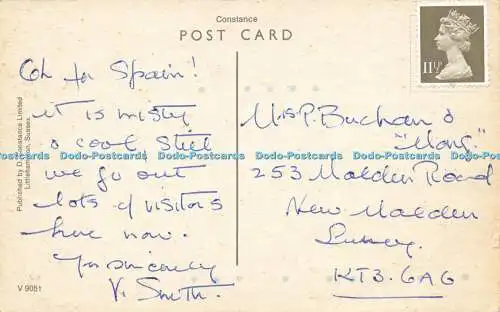 Constance
POST CARD
11½P
Oh for Spain!
it is misty
& cool still
we go out
lots of visitors
here now.
Yours sincerely
V. Smith.
Mrs P. Buchan &
253 Malden Road
New Malden
Surrey.
KT3. 6AG
Published by D. Constance Limited
Littlehampton, Sussex.
V 9051
Dodo-Postcards Dodo-Postcards Dodo-Postcards Dodo-Postcards Dodo-Postcards